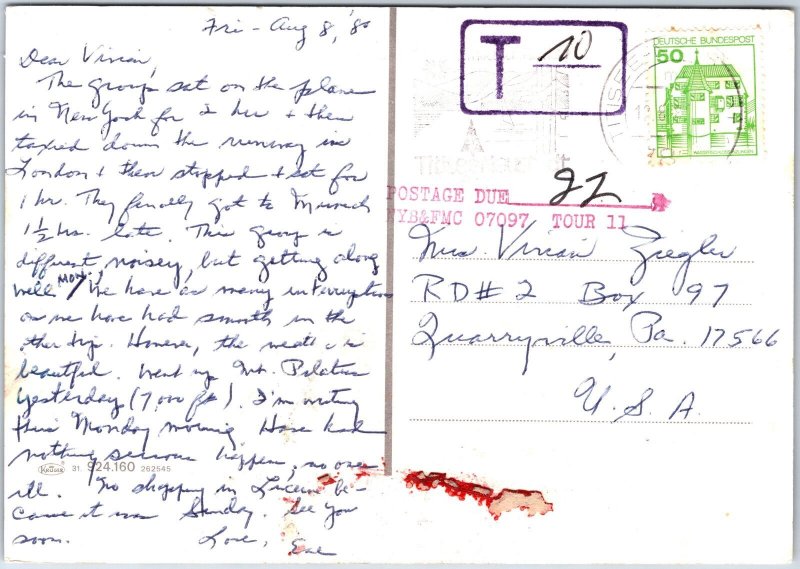 Fri - Aug 8, '80
Dear Vivian,
The group sat on the plane
in New York for 2 hrs + then
taxied down the runway in
London + then stopped + sat for
1 hr. They finally got to Munich
1½ hrs. late. This group is
different, noisey, but getting along
well. MON. We have as many interruptions
as we have had smooth in the
other trip. However, the weather is
beautiful. Went up Mt. Pilatus
yesterday (7,000 ft). I'm writing
this Monday morning Have had
nothing serious happen, no one
ill. No shopping in Lucerne be-
cause it was Sunday. See you
soon. Love,
KRÜGER 31. 924.160 262545
T 10
DEUTSCHE BUNDESPOST
50
POSTAGE DUE 22
NYB&FMC 07097 TOUR 11
Mrs. Vivian Ziegler
RD# 2 Box 97
Quarryville, Pa. 17566
U.S.A.